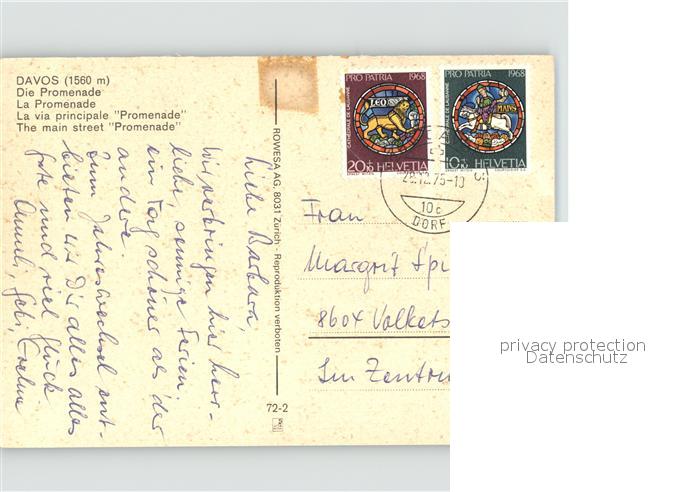 DAVOS (1560 m)
Die Promenade
La Promenade
La via principale "Promenade"
The main street "Promenade"
ROWESA AG, 8031 Zürich - Reproduktion verboten
72-2
PRO PATRIA 1968
CATHEDRALE DE LAUSANNE
LEO
20+10 HELVETIA
PRO PATRIA 1968
CATHEDRALE DE LAUSANNE
10+10 HELVETIA
28.12.75-10
10 c
DORF
Liebe Barbara,
Wir verbringen hier herr-
liche, sonnige Ferien,
ein Tag schöner als der
andere.
Zum Jahreswechsel ent-
bieten wir Dir alles alles
Gute und viel Glück
Frau
Margrit Spi
8604 Volkets
Im Zentru
privacy protection
Datenschutz